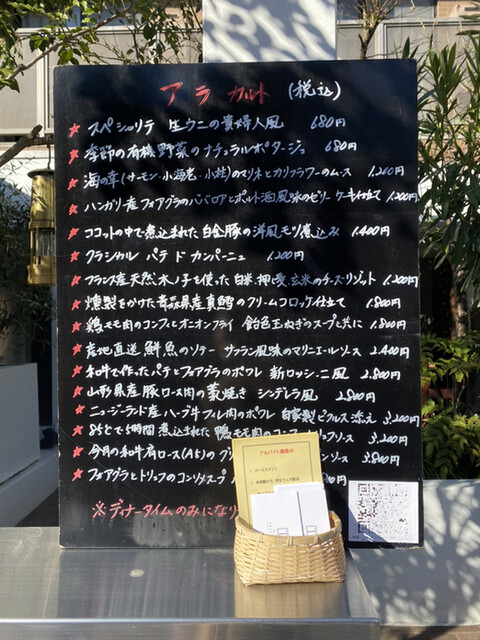 アラカルト (税込)
★ スペシャリテ 生ウニの貴婦人風 680円
★ 季節の有機野菜のナチュラルポタージュ 680円
★ 海の幸(サーモン・小海老・小柱)のマリネとカリフラワーのムース 1.200円
★ ハンガリー産フォアグラのババロアとポルト酒風味のゼリー ケーキ仕立て 1.200円
★ ココットの中で煮込まれた白金豚の洋風モツ煮込み 1.400円
★ クラシカル パテ ド カンパーニュ 1.200円
★ フランス産天然木ノ子を使った白米、押し麦、玄米のチーズリゾット 1.200円
★ 燻製をかけた青森県産真鱈のクリームコロッケ仕立て 1.800円
★ 鶏モモ肉のコンフィとオニオンフライ 飴色玉ねぎのスープと共に 1.800円
★ 産地直送鮮魚のソテー サフラン風味のマリニエールソース 2.400円
★ 和牛で作ったパテとフォアグラのポワレ 新ロッシーニ風 2.800円
★ 山形県産豚ロース肉の藁焼き シンデレラ風 2.800円
★ ニュージーランド産ハーブ牛フィレ肉のポワレ 自家製ピクルス添え 3.200円
★ 85℃で6時間煮込まれた鴨モモ肉のコンフィ ソース 3.200円
★ 今月の和牛肩ロース(A5)の ソース 3.800円
★ フォアグラとトリュフのコンソメスープ
※ディナータイムのみになり
アルバイト募集中
ホールスタッフ